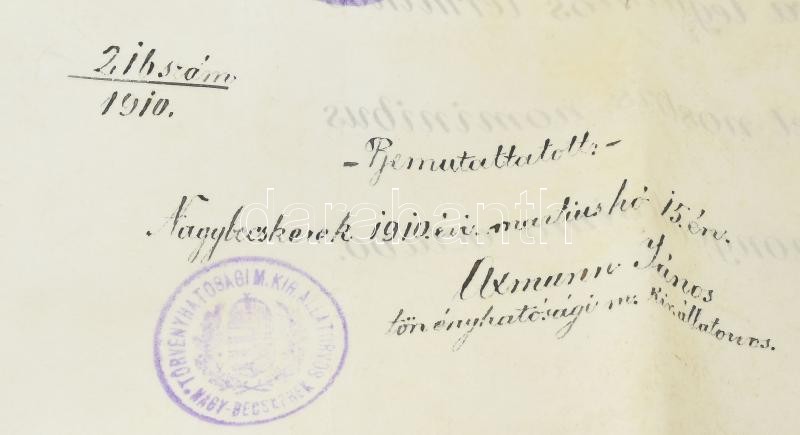 2,16 szám
1910.
- Bemutattatott: -
Nagybecskerek 1910. évi martius hó 15.én.
Axmann János
törvényhatósági m. kir. állatorvos.
TÖRVÉNYHATÓSÁGI M. KIR. ÁLLATORVOS
NAGY-BECSKEREK
darabanth
nominibus